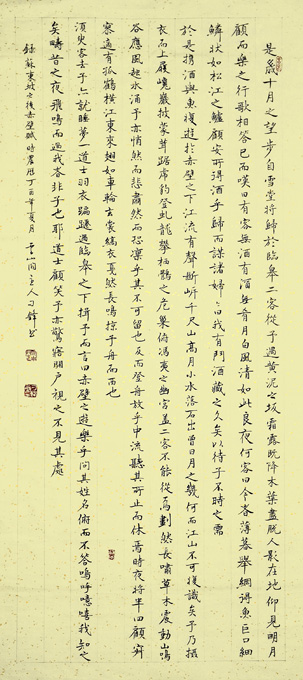 是歲十月之望步自雪堂將歸於臨皋二客從予過黃泥之坂霜露既降木葉盡脫人影在地仰見明月
顧而樂之行歌相答已而嘆曰有客無酒有酒無肴月白風清如此良夜何客曰今者薄暮舉網得魚巨口細
鱗狀如松江之鱸顧安所得酒乎歸而謀諸婦婦曰我有斗酒藏之久矣以待子不時之需
於是攜酒與魚復遊於赤壁之下江流有聲斷岸千尺山高月小水落石出曾日月之幾何而江山不可復識矣予乃攝
衣而上履巉巖披蒙茸踞虎豹登虬龍攀栖鶻之危巢俯馮夷之幽宮蓋二客不能從焉劃然長嘯草木震動山鳴
谷應風起水湧予亦悄然而悲肅然而恐凜乎其不可留也反而登舟放乎中流聽其所止而休焉時夜將半四顧寂
寥適有孤鶴橫江東來翅如車輪玄裳縞衣戛然長鳴掠予舟而西也
須臾客去予亦就睡夢一道士羽衣蹁躚過臨皋之下揖予而言曰赤壁之遊樂乎問其姓名俯而不答嗚呼噫嘻我知之
矣疇昔之夜飛鳴而過我者非子也耶道士顧笑予亦驚寤開戶視之不見其處
錄蘇東坡之後赤壁賦時農曆丁酉年夏月 山間主人刁鋒書